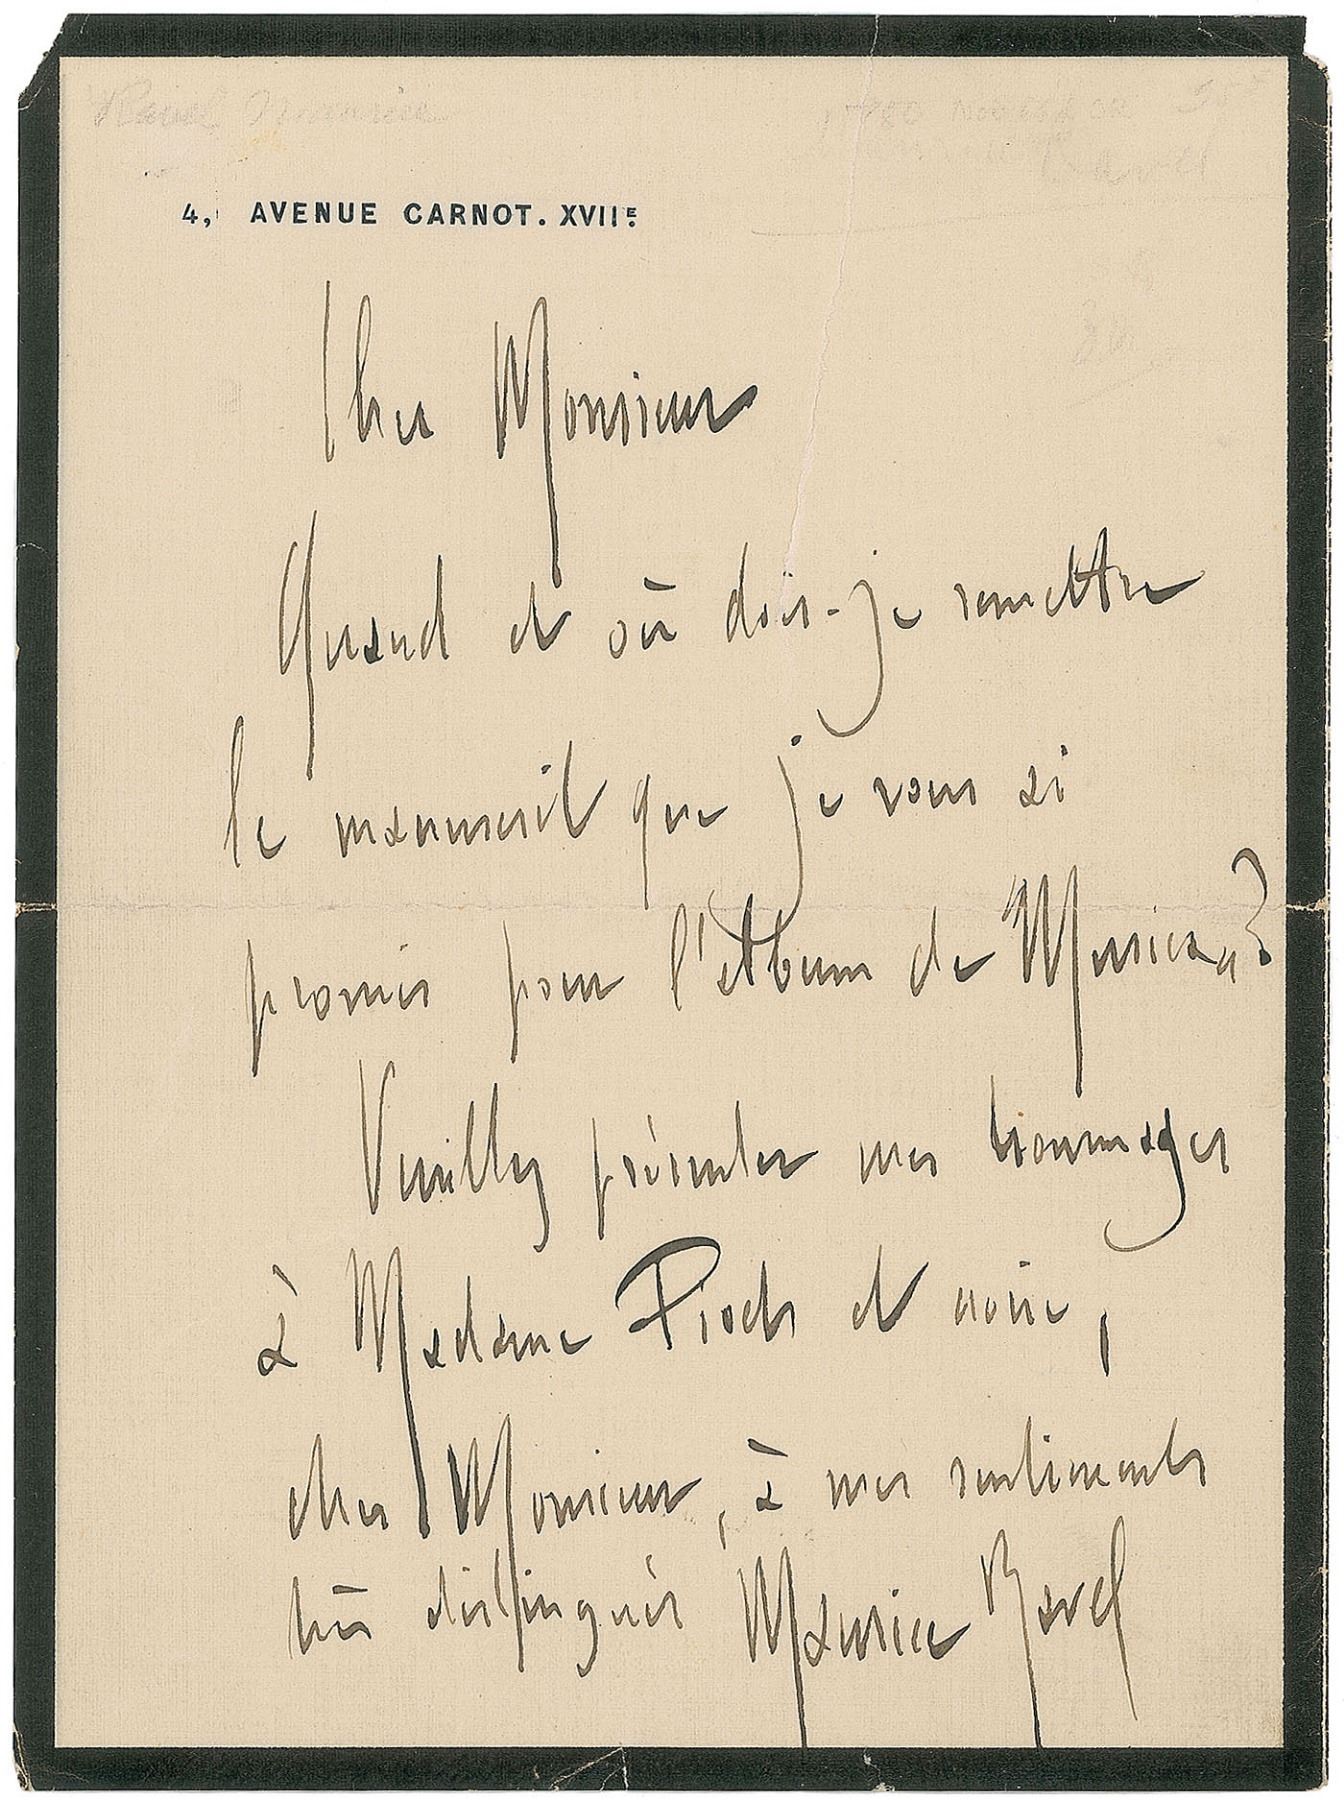 Ravel Maurice
Ravel
4, AVENUE CARNOT. XVIIE.
Cher Monsieur
Quand et où dois-je remettre
le manuscrit que je vous ai
promis pour l'Album de Musica?
Veuillez présenter mes hommages
à Madame Pioch et croire,
cher Monsieur, à mes sentiments
très distingués Maurice Ravel